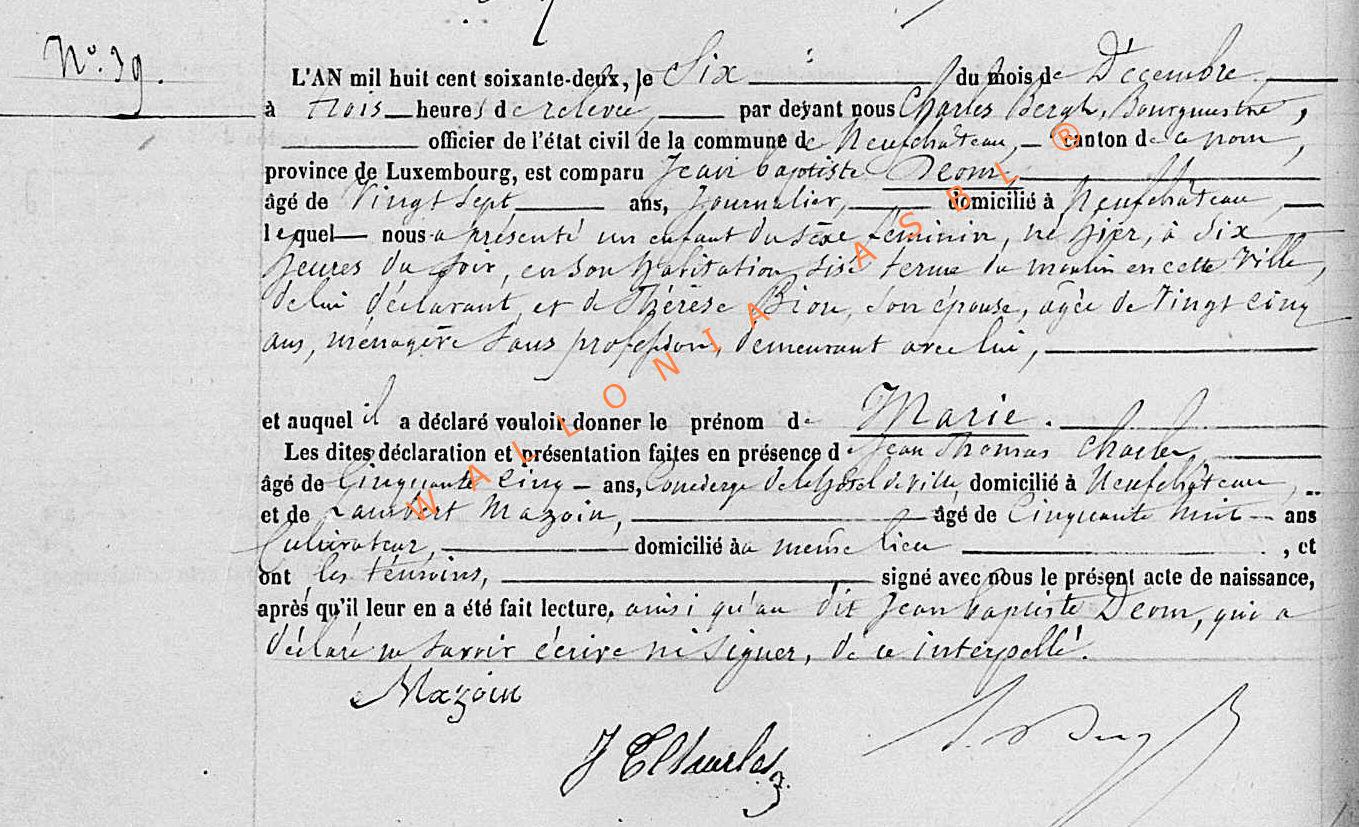 N° 39.
L'AN mil huit cent soixante-deux, le Six du mois de Décembre
à trois heures de relevée, par devant nous Charles Bergh, Bourgmestre,
officier de l'état civil de la commune de Neufchâteau, canton de ce nom,
province de Luxembourg, est comparu Jean baptiste Deom,
âgé de Vingt Sept ans, Journalier, domicilié à Neufchâteau,
lequel nous a présenté un enfant du sexe féminin, né hier, à Six
heures du soir, en son habitation, sise terme du moulin en cette Ville,
de lui déclarant, et de Thérèse Bion, son épouse, agée de Vingt cinq
ans, ménagère sans profession, demeurant avec lui,
et auquel il a déclaré vouloir donner le prénom de Marie.
Les dites déclaration et présentation faites en présence de Jean Thomas Charles,
âgé de Cinquante Cinq ans, Concierge de l'hôtel de ville, domicilié à Neufchâteau,
et de Lambert Mazoin, âgé de Cinquante huit ans
Cultivateur, domicilié au même lieu, et
ont les témoins, signé avec nous le présent acte de naissance,
après qu'il leur en a été fait lecture, ainsi qu'au dit Jean baptiste Deom, qui a
déclaré ne savoir écrire ni signer, de ce interpellé.
Mazoin
J T Charles
WALLONIA ASBL ®